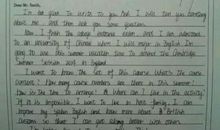 Dear Mr. Smith,
I'm so glad to write to you and I will
about me and then ask you some questions.
Now I from the college entrance exam and I am admitted
to an University of where I will major in English. I'm
going to use this summer vacation time to attend the Cambridge
Summer Session 2014 in England.
I want to know the of this course. What's the course
content? How many course numbers are there in this summer?
How is the time to arrange? Where can I live in the activity?
If it is impossible, I want to live in host family, I can
improve my spoken English and know more about British
custom so that I can get along better with others.